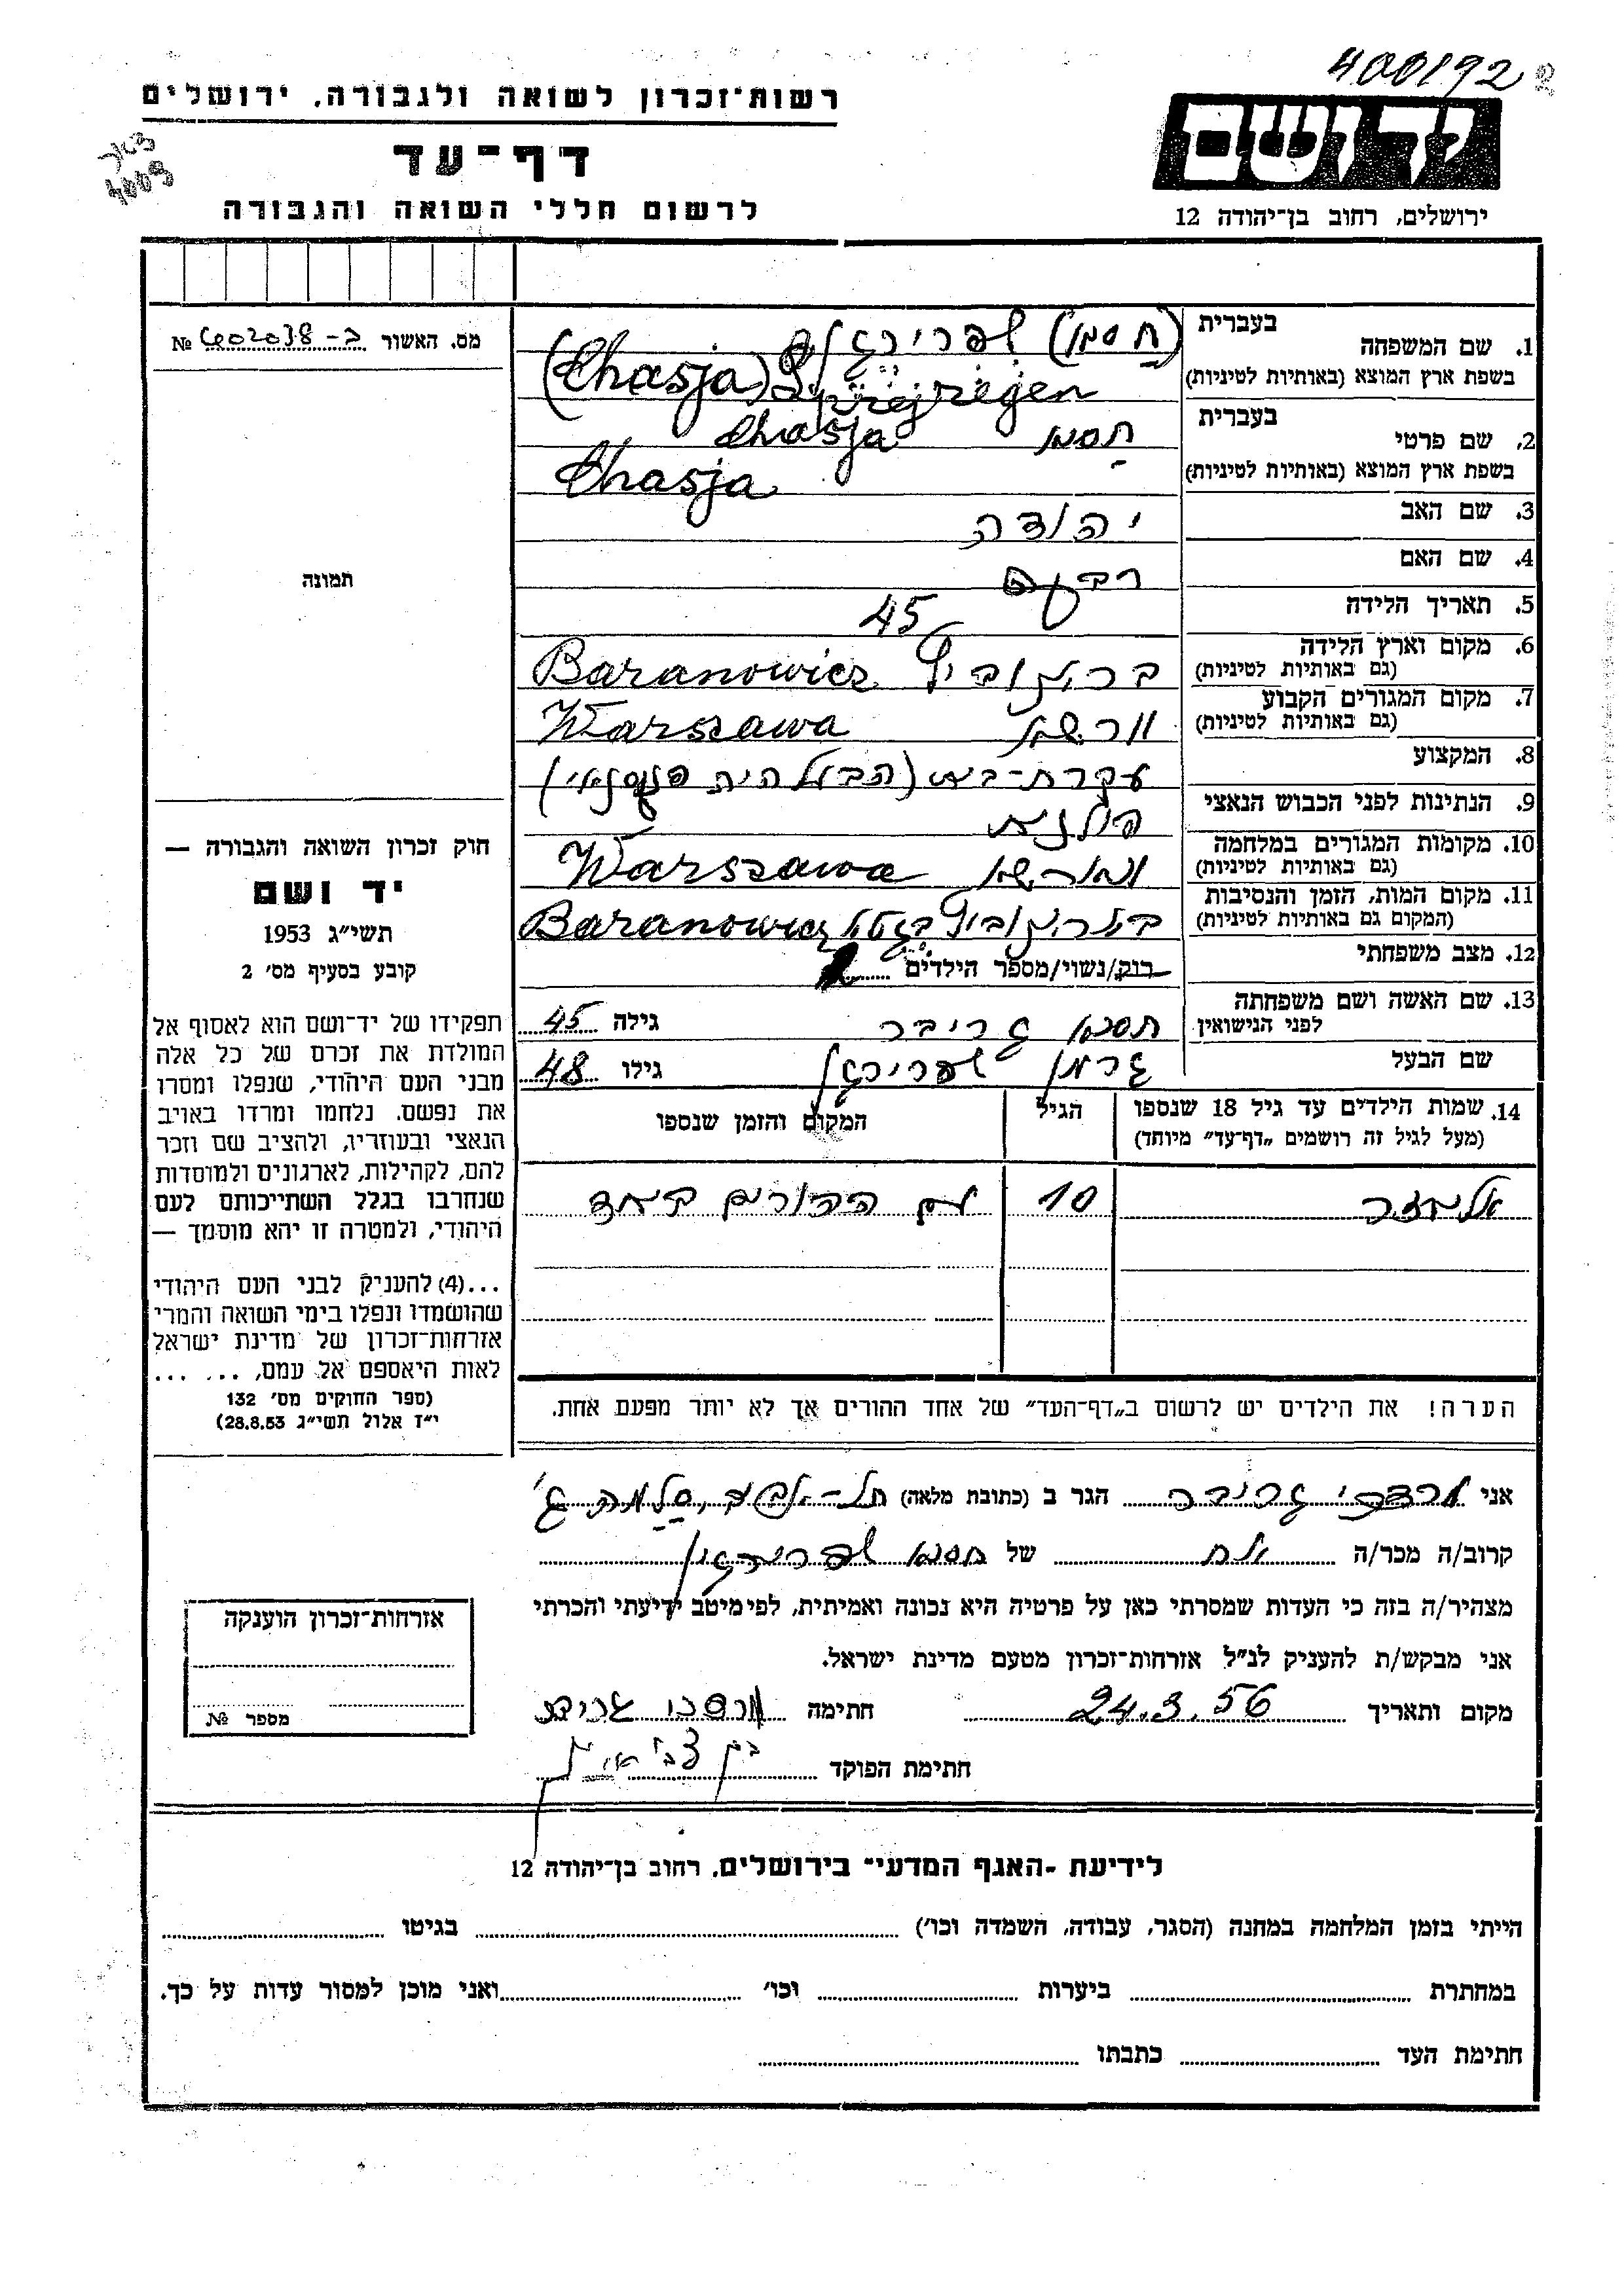 400192
רשות־זכרון לשואה ולגבורה, ירושלים
ידושם
דף־עד
לרשום חללי השואה והגבורה
ירושלים, רחוב בן־יהודה 12
מס. האשור ב-402038 №
תמונה
חוק זכרון השואה והגבורה —
יד ושם
תשי״ג 1953
קובע בסעיף מס׳ 2
תפקידו של יד־ושם הוא לאסוף אל
המולדת את זכרם של כל אלה
מבני העם היהודי, שנפלו ומסרו
את נפשם. נלחמו ומרדו באויב
הנאצי ובעוזריו, ולהציב שם וזכר
להם, לקהילות, לארגונים ולמוסדות
שנחרבו בגלל השתייכותם לעם
היהודי, ולמטרה זו יהא מוסמך —
...(4) להעניק לבני העם היהודי
שהושמדו ונפלו בימי השואה והמרי
אזרחות־זכרון של מדינת ישראל
לאות היאספם אל עמם, .. ... ...
(ספר החוקים מס׳ 132
י״ז אלול תשי״ג 28.8.53)
1. שם המשפחה בעברית (חסיה) שפרירגן
בשפת ארץ המוצא (באותיות לטיניות) (Chasja) Szprejregen
2. שם פרטי בעברית חסיה Chasja
בשפת ארץ המוצא (באותיות לטיניות) Chasja
3. שם האב יהודה
4. שם האם
5. תאריך הלידה 45
6. מקום וארץ הלידה (גם באותיות לטיניות) ברנוביץ Baranowicz
7. מקום המגורים הקבוע (גם באותיות לטיניות) ורשה Warszawa
8. המקצוע עקרת-בית (הבעל היה
9. הנתינות לפני הכבוש הנאצי פולנית
10. מקומות המגורים במלחמה (גם באותיות לטיניות) ווארשה Warszawa
11. מקום המות, הזמן והנסיבות (המקום גם באותיות לטיניות) בארנוביץ בגטו Baranowicz
12. מצב משפחתי רוק/נשוי/מספר הילדים
13. שם האשה ושם משפחתה לפני הנישואין חסיה גריבר גילה 45
שם הבעל שפרירגן גילו 48
14. שמות הילדים עד גיל 18 שנספו
(מעל לגיל זה רושמים „דף־עד״ מיוחד) הגיל המקום והזמן שנספו
אליעזר 10 עם ההורים ביחד
הערה! את הילדים יש לרשום ב„דף־העד״ של אחד ההורים אך לא יותר מפעם אחת.
אני מרדכי גריבר הגר ב (כתובת מלאה) תל-אביב, סלמה ג׳
קרוב/ה מכר/ה אח של חסיה שפרירגן
מצהיר/ה בזה כי העדות שמסרתי כאן על פרטיה היא נכונה ואמיתית, לפי מיטב ידיעתי והכרתי
אני מבקש/ת להעניק לנ״ל אזרחות־זכרון מטעם מדינת ישראל.
מקום ותאריך 24.3.56 חתימה מרדכי גריבר
חתימת הפוקד
אזרחות־זכרון הוענקה
מספר №
לידיעת ־האגף המדעי״ בירושלים. רחוב בן־יהודה 12
הייתי בזמן המלחמה במחנה (הסגר, עבודה, השמדה וכו׳) בגיטו
במחתרת ביערות וכו׳ ואני מוכן למסור עדות על כך.
חתימת העד כתבתו